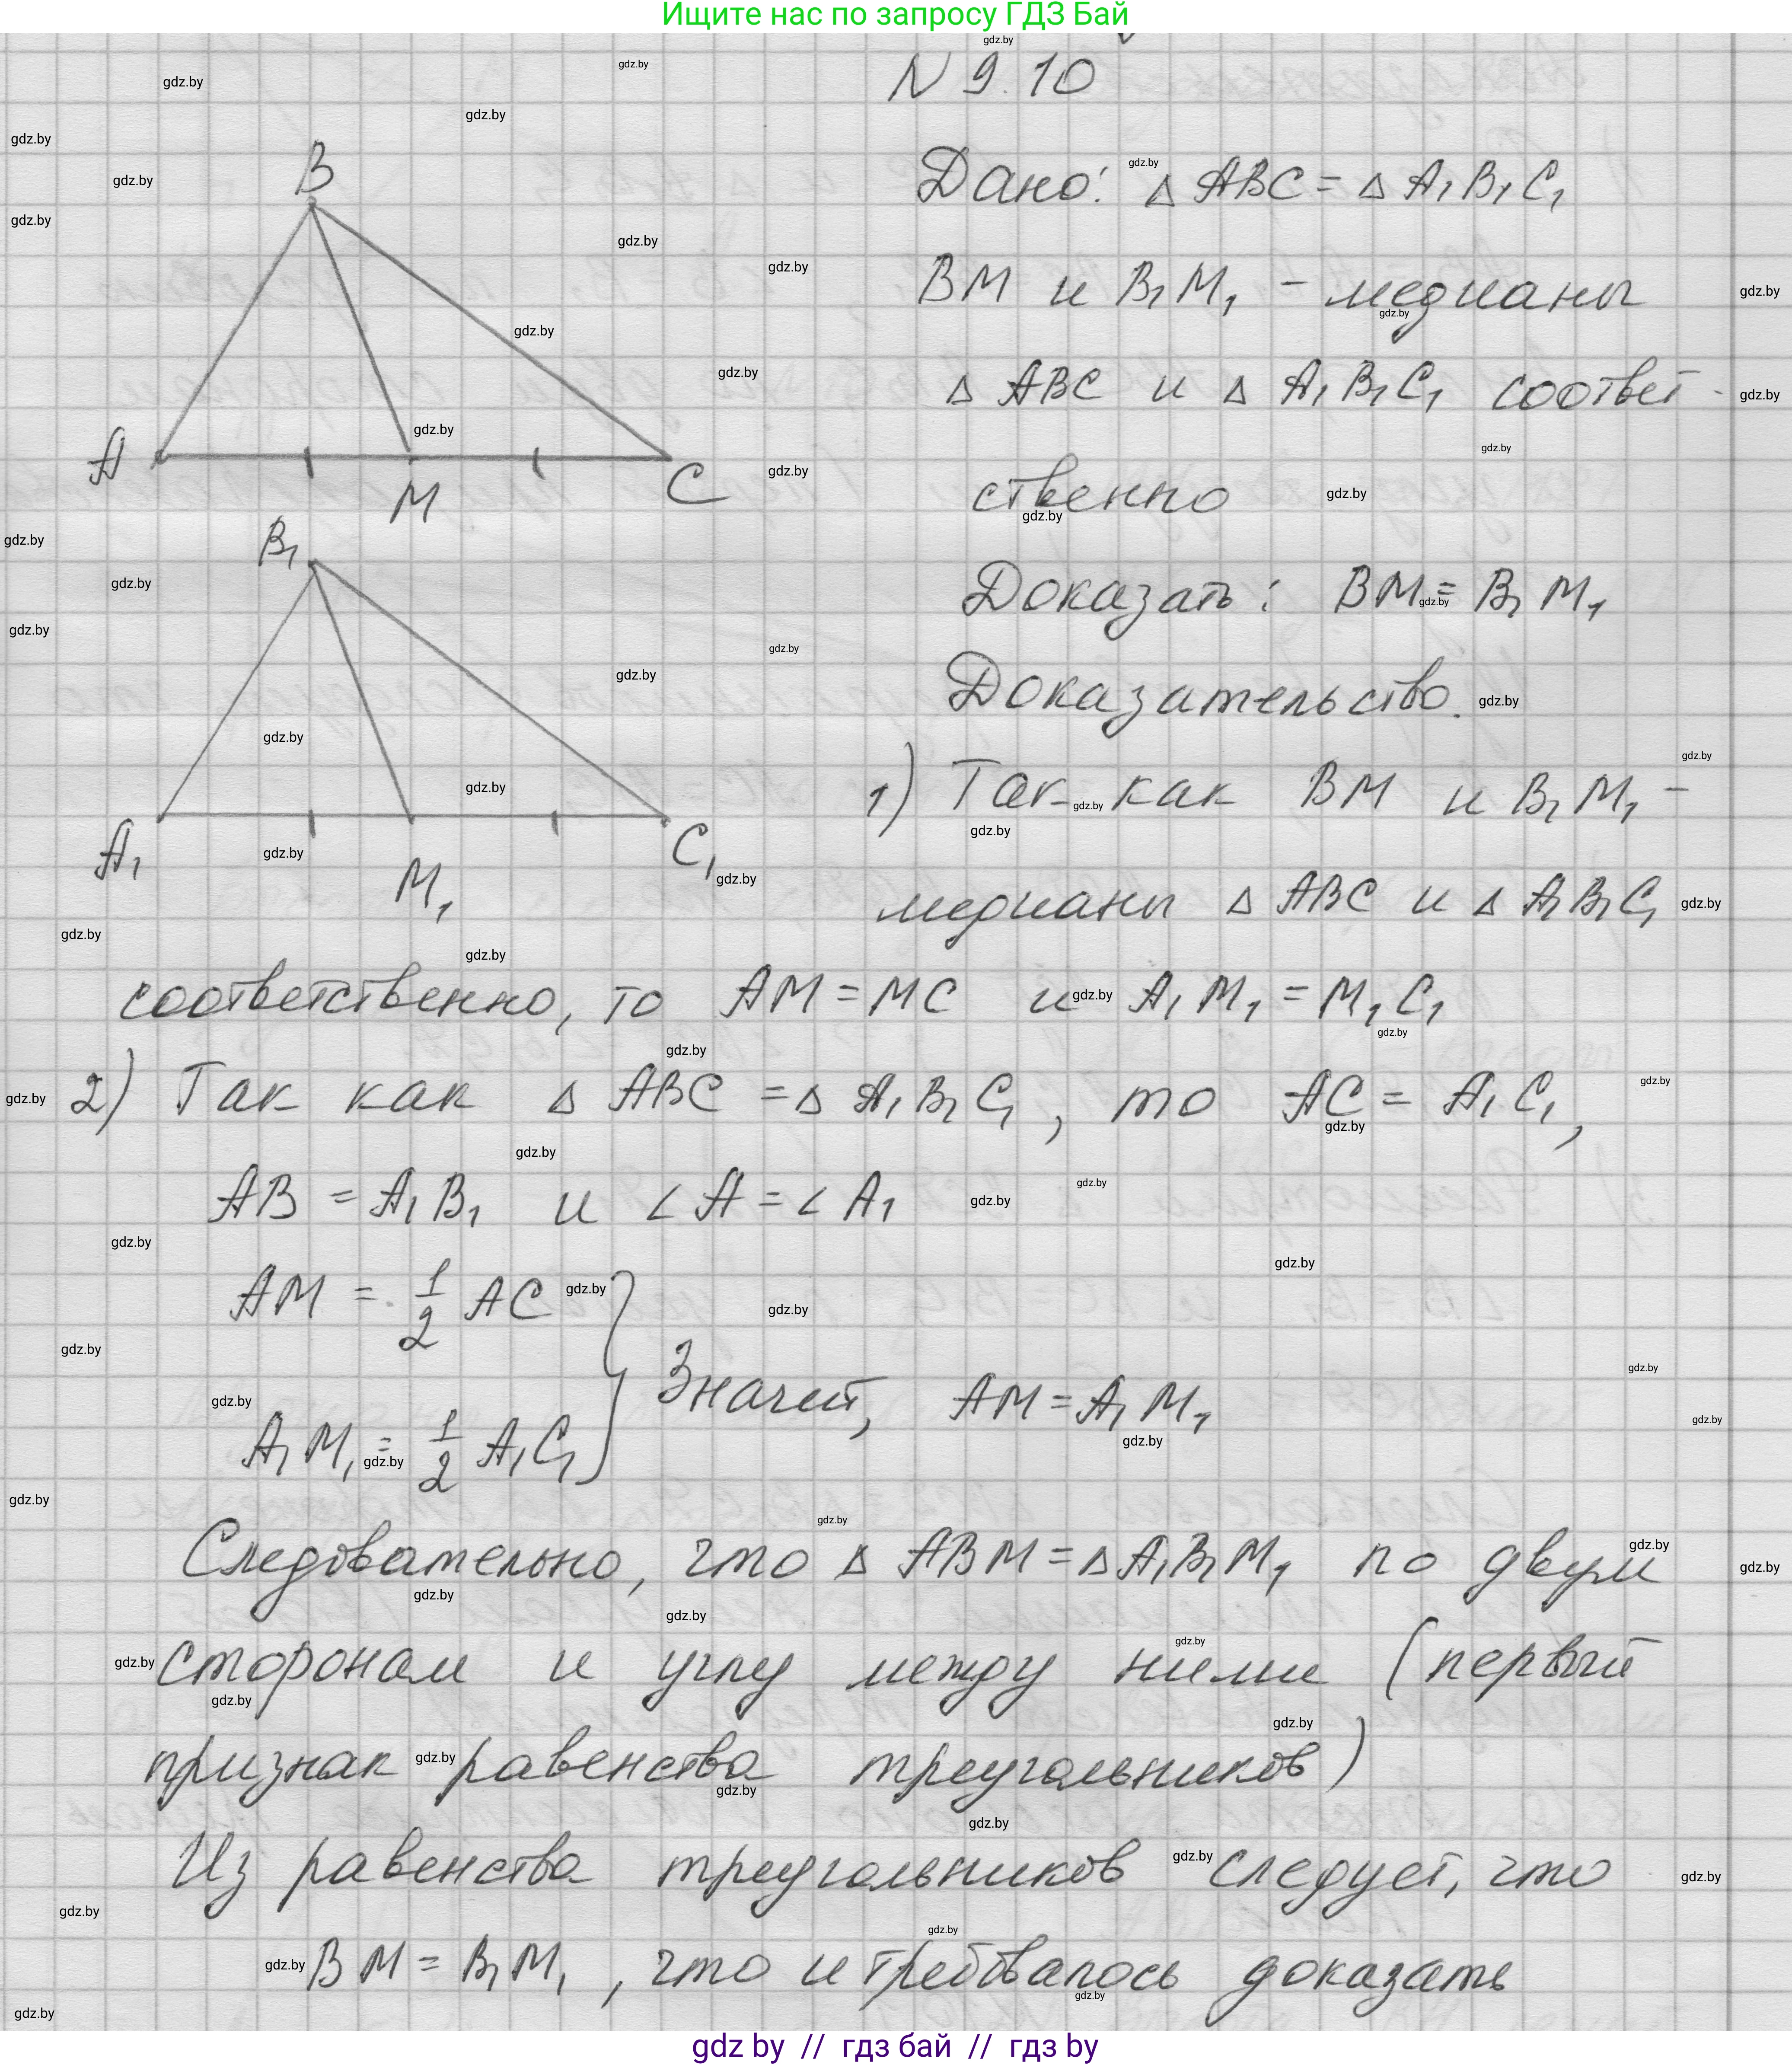 Ищите нас по запросу ГДЗ Бай
N 9.10
Дано: △ ABC = △ A₁B₁C₁
BM и B₁M₁ - медианы
△ ABC и △ A₁B₁C₁ соответ-
ственно
Доказать: BM = B₁M₁
Доказательство.
1) Так как BM и B₁M₁ -
медианы △ ABC и △ A₁B₁C₁
соответственно, то AM = MC и A₁M₁ = M₁C₁
2) Так как △ ABC = △ A₁B₁C₁, то AC = A₁C₁,
AB = A₁B₁ и ∠A = ∠A₁
AM = 1/2 AC
Значит, AM = A₁M₁
A₁M₁ = 1/2 A₁C₁
Следовательно, что △ ABM = △ A₁B₁M₁ по двум
сторонам и углу между ними (первый
признак равенства треугольников)
Из равенства треугольников следует, что
BM = B₁M₁, что и требовалось доказать
B
A
M
C
B₁
A₁
M₁
C₁
gdz.by
gdz by // гдз бай // гдз by